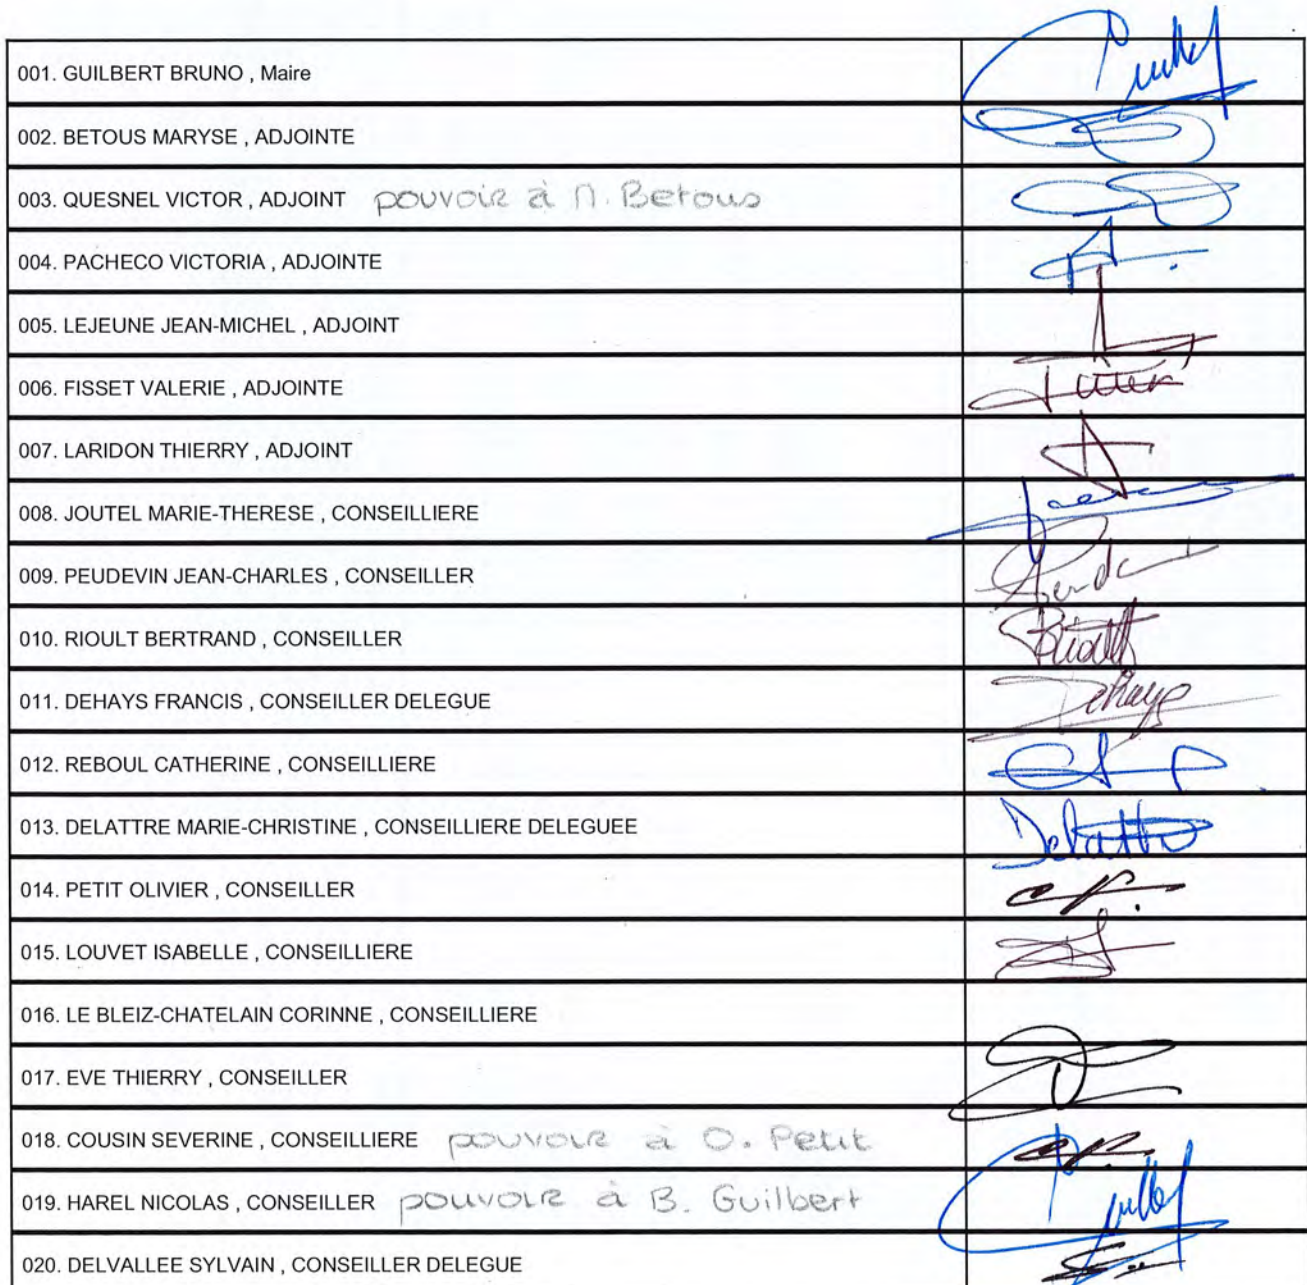 001. GUILBERT BRUNO , Maire
002. BETOUS MARYSE , ADJOINTE
003. QUESNEL VICTOR , ADJOINT pouvoir à M. Betous
004. PACHECO VICTORIA , ADJOINTE
005. LEJEUNE JEAN-MICHEL , ADJOINT
006. FISSET VALERIE , ADJOINTE
007. LARIDON THIERRY , ADJOINT
008. JOUTEL MARIE-THERESE , CONSEILLIERE
009. PEUDEVIN JEAN-CHARLES , CONSEILLER
010. RIOULT BERTRAND , CONSEILLER
011. DEHAYS FRANCIS , CONSEILLER DELEGUE Dehays
012. REBOUL CATHERINE , CONSEILLIERE
013. DELATTRE MARIE-CHRISTINE , CONSEILLIERE DELEGUEE Delattre
014. PETIT OLIVIER , CONSEILLER
015. LOUVET ISABELLE , CONSEILLIERE
016. LE BLEIZ-CHATELAIN CORINNE , CONSEILLIERE
017. EVE THIERRY , CONSEILLER
018. COUSIN SEVERINE , CONSEILLIERE pouvoir à O. Petit
019. HAREL NICOLAS , CONSEILLER pouvoir à B. Guilbert
020. DELVALLEE SYLVAIN , CONSEILLER DELEGUE